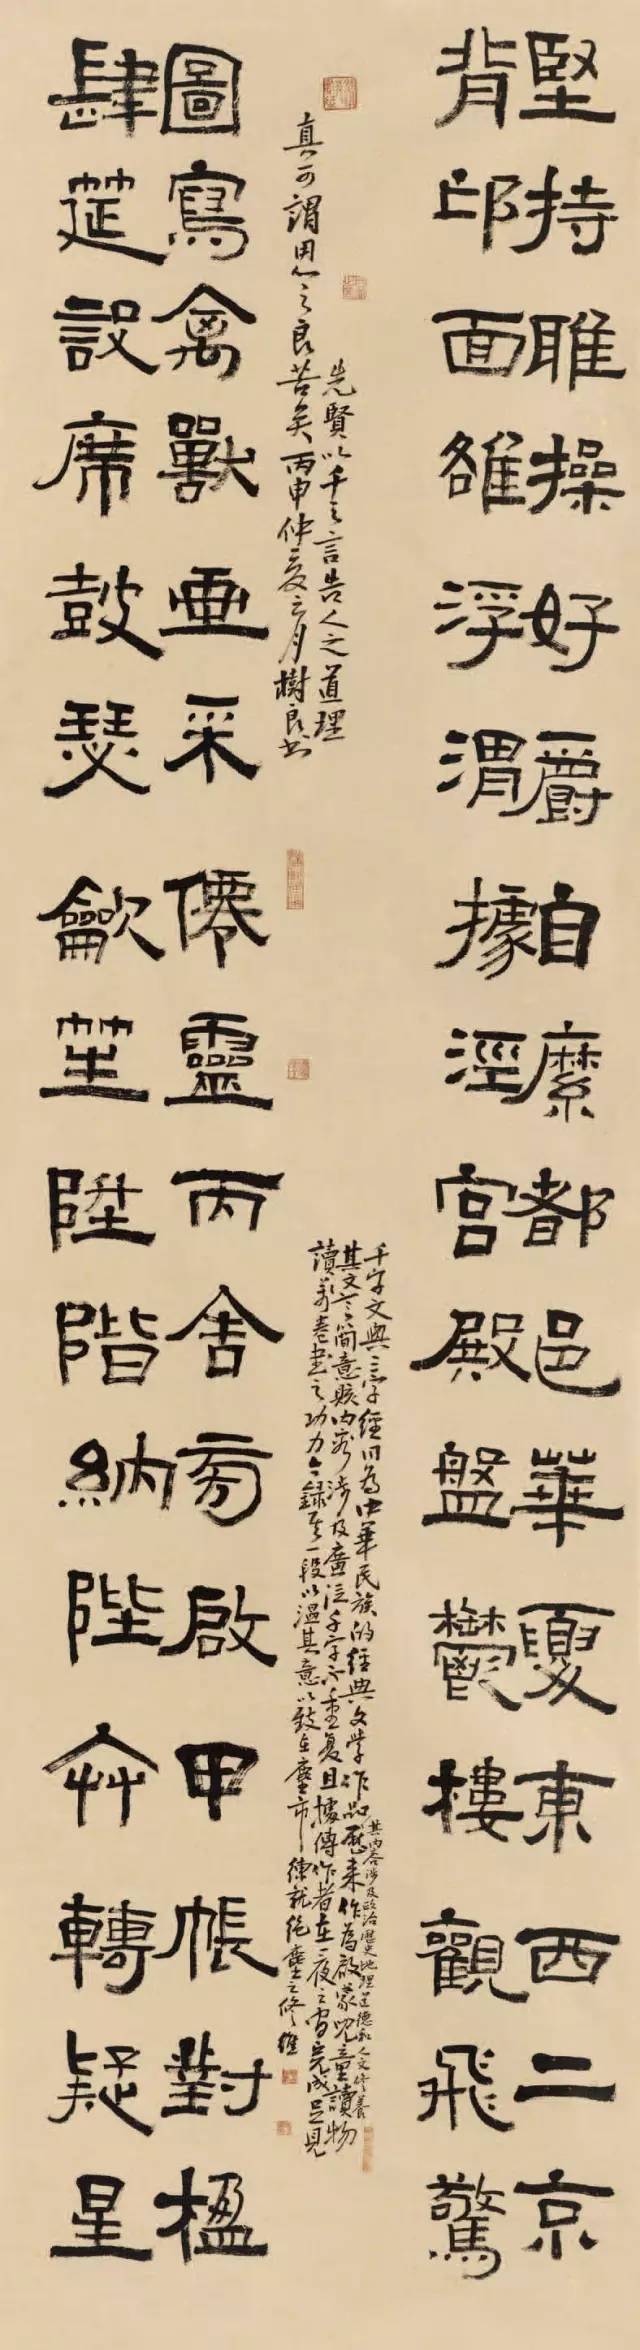 堅持雅操好爵自縻都邑華夏東西二京
背邙面雒浮渭據涇宮殿盤鬱樓觀飛驚
千字文與三字經同為中華民族的經典文學作品歷來作為啟蒙兒童讀物
其內容涉及政治歷史地理道德和人文修養
其文言簡意賅內容涉及廣泛千字不重复且據傳作者在一夜之間完成足見
讀萬卷書之功力今錄其一段以溫其意以致在塵市練就絕塵之修維
先賢以千之言告人之道理
真可謂用心之良苦矣丙申仲夏之月樹良書
圖寫禽獸畫采僊靈丙舍旁啟甲帳對楹
肆筵設席鼓瑟龡笙陞階納陛弁轉疑星